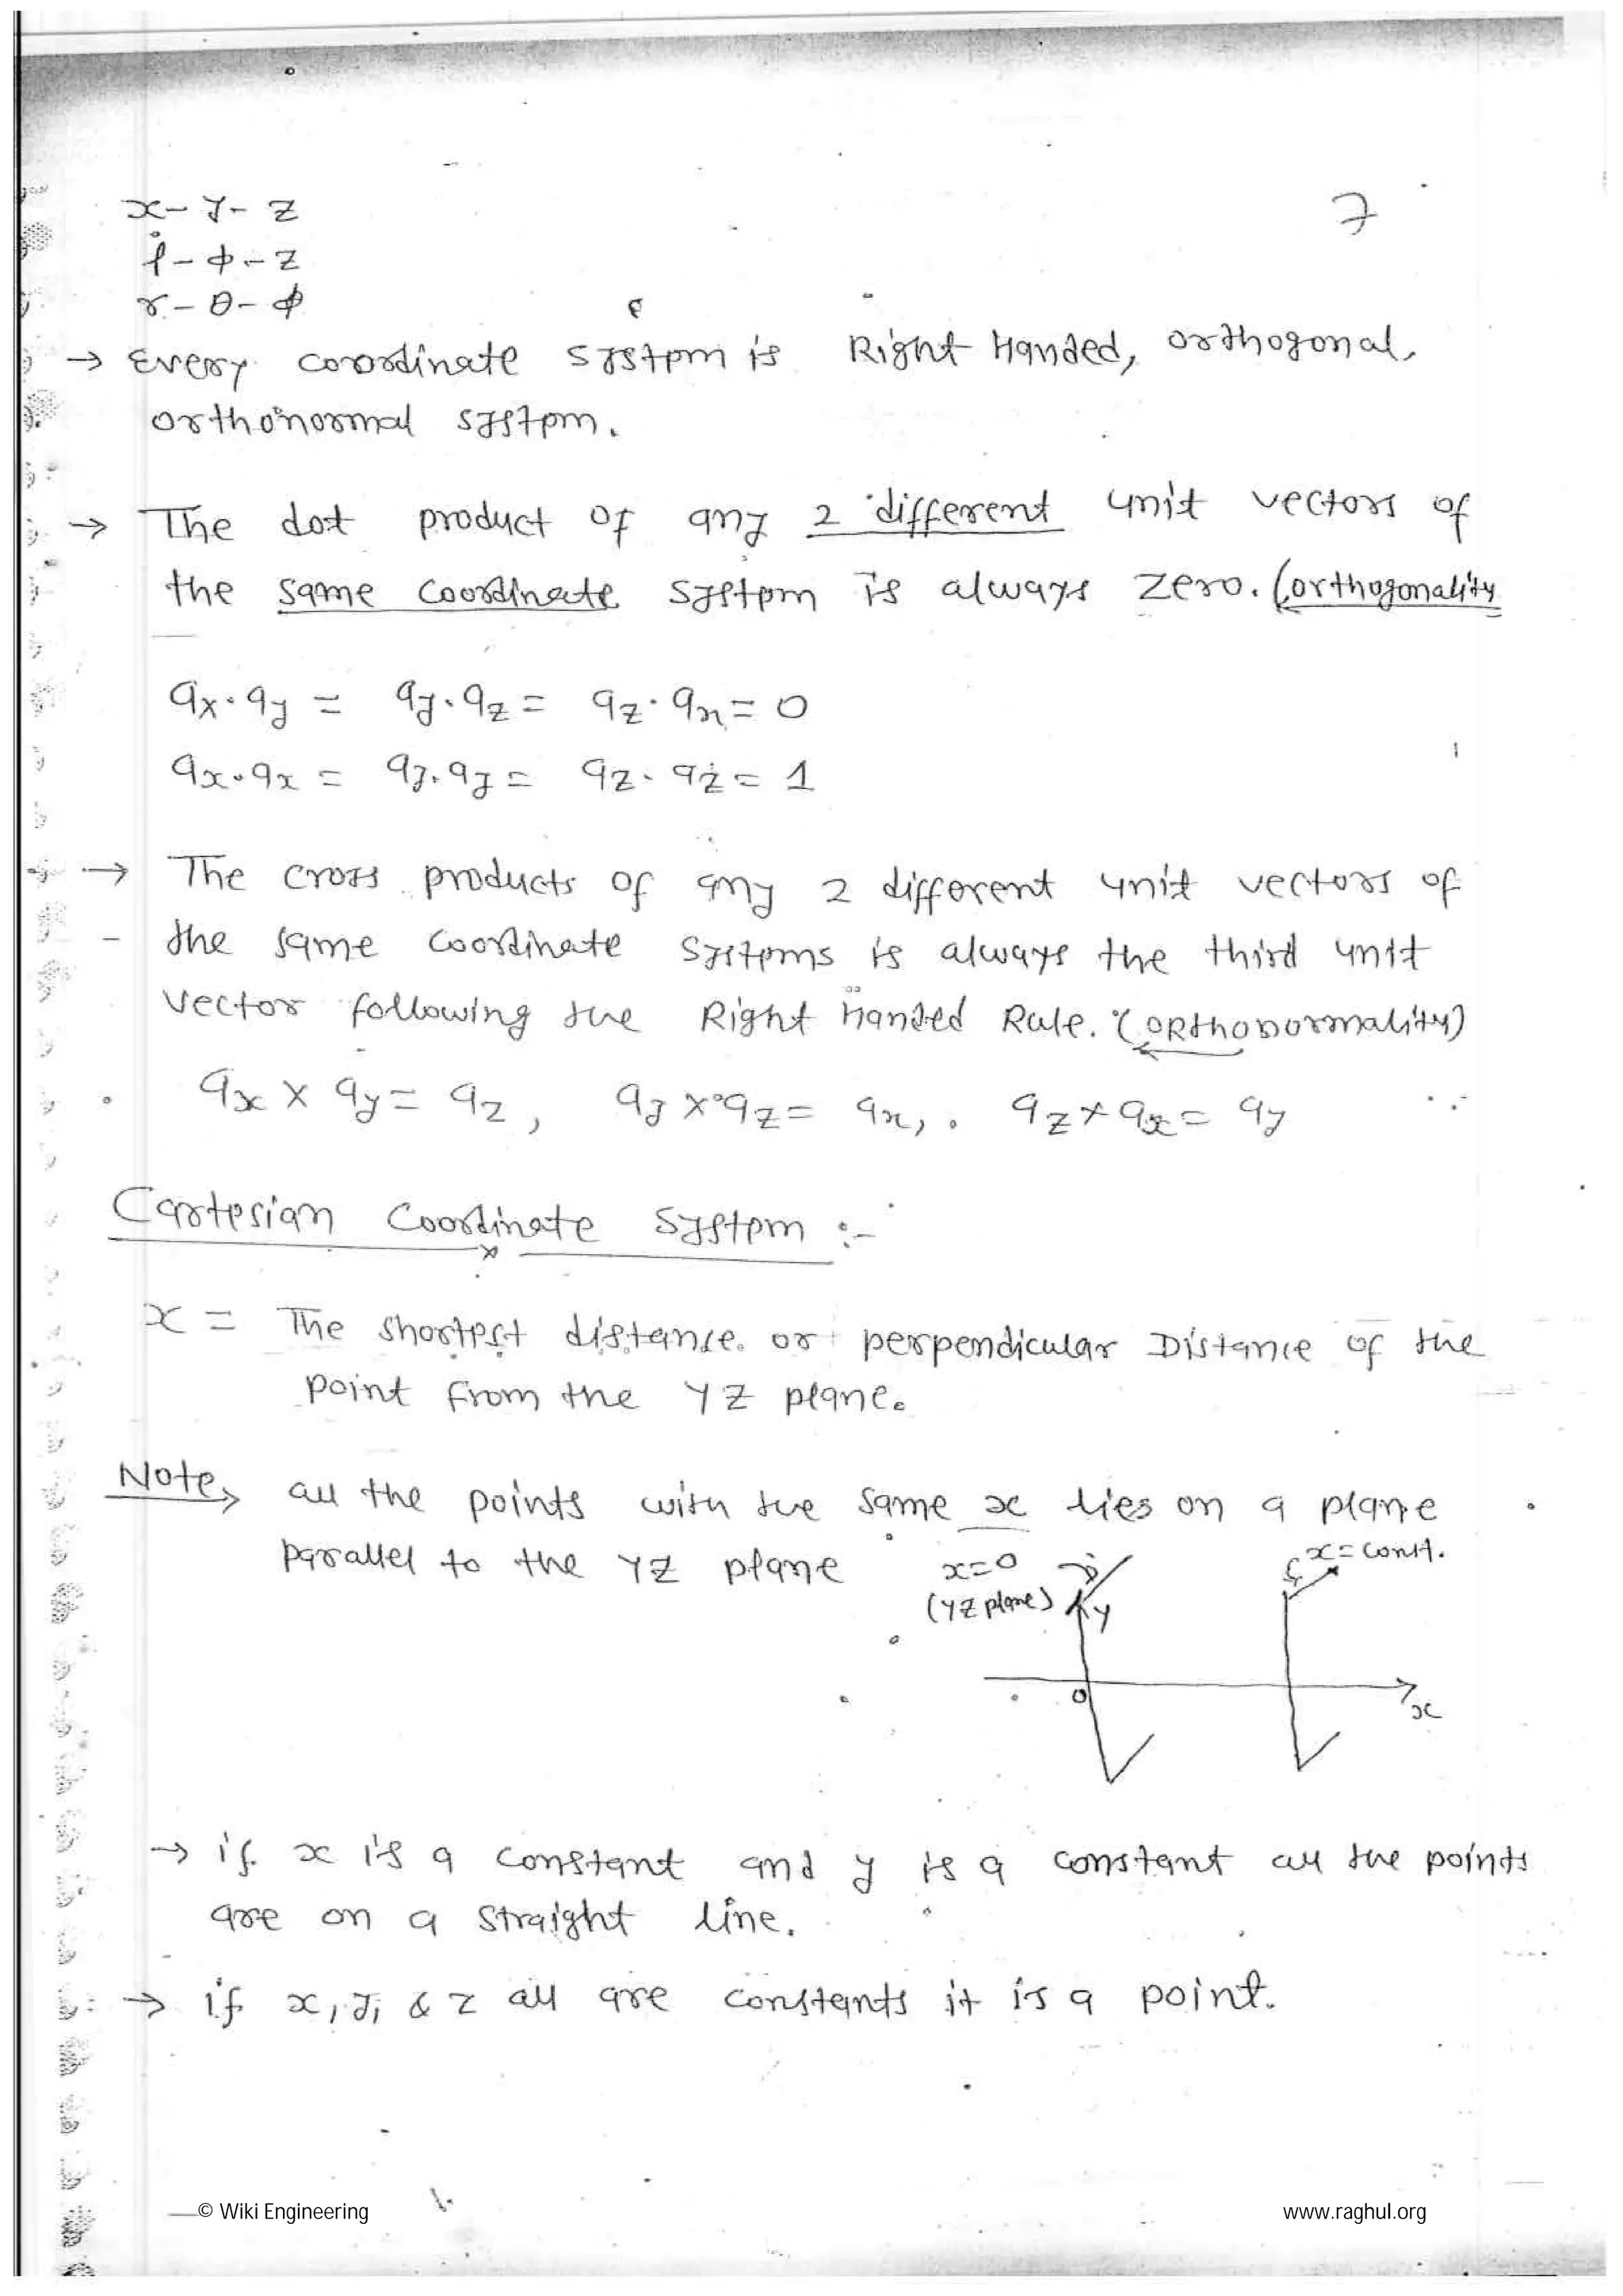 7
x - y - z
ρ - φ - z
r - θ - φ
→ Every coordinate system is Right Handed, orthogonal,
orthonormal system.
→ The dot product of any 2 different unit vectors of
the same coordinate system is always zero. (orthogonality
ax · ay = ay · az = az · ax = 0
ax · ax = ay · ay = az · az = 1
→ The cross products of any 2 different unit vectors of
the same coordinate systems is always the third unit
vector following the Right Handed Rule. (orthonormality)
ax × ay = az, ay × az = ax, az × ax = ay
Cartesian Coordinate System :-
x = The shortest distance or perpendicular Distance of the
point from the YZ plane.
Note, all the points with the same x lies on a plane
parallel to the YZ plane
x=0
(YZ plane)
y
x = const.
0
x
→ if x is a constant and y is a constant all the points
are on a straight line.
→ if x, y, & z all are constants it is a point.
© Wiki Engineering
www.raghul.org